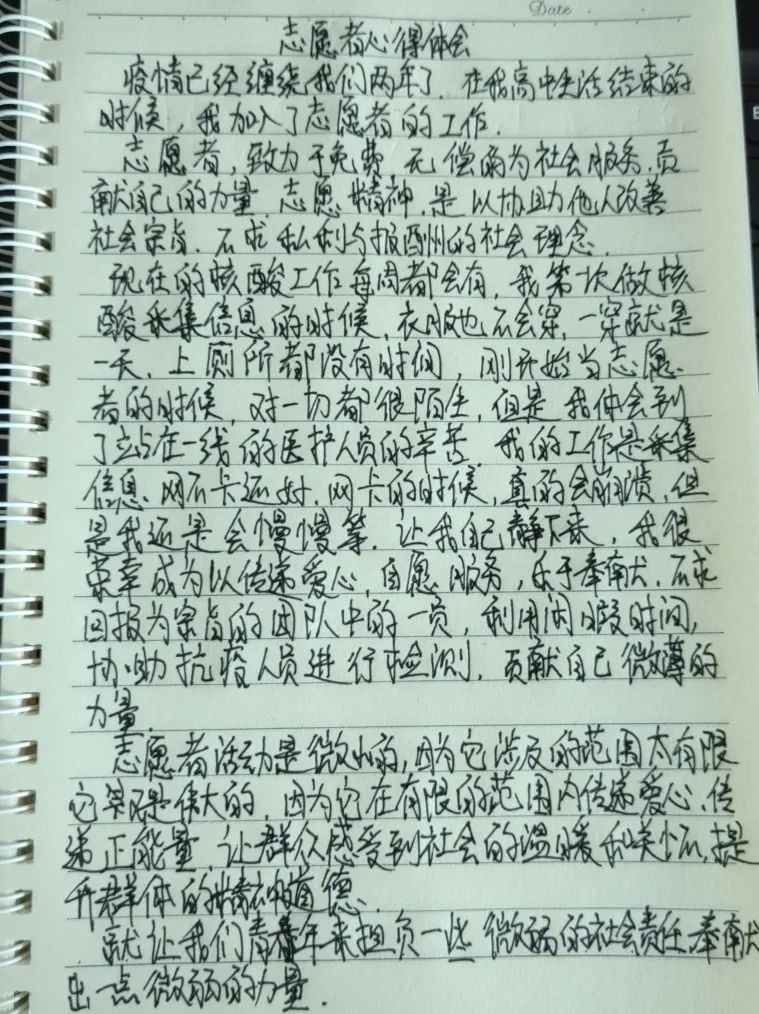 Date
志愿者心得体会
疫情已经缠绕我们两年了.在我高中生活结束的
时候,我加入了志愿者的工作.
志愿者,致力于免费、无偿的为社会服务,贡
献自己的力量.志愿精神,是以协助他人改善
社会宗旨.不求私利与报酬州的社会理念.
现在的核酸工作每周都会有,我第一次做核
酸采集信息的时候,衣服也不会穿,一穿就是
一天,上厕所都没有时间,刚开始当志愿
者的时候,对一切都很陌生,但是我体会到
了站在一线的医护人员的辛苦.我的工作是采集
信息.网不卡还好.网卡的时候,真的会崩溃,但
是我还是会慢慢等.让我自己静下来,我很
荣幸成为以传递爱心,自愿服务,乐于奉献,不求
回报为宗旨的团队中的一员,利用闲暇时间,
协助抗疫人员进行检测,贡献自己微薄的
力量.
志愿者活动是微小的,因为它涉及的范围太有限
它却是伟大的,因为它在有限的范围内传递爱心.传
递正能量,让群众感受到社会的温暖和关怀,提
升群体的精神道德.
就让我们青春年来担负一些微弱的社会责任,奉献
出一点微弱的力量.